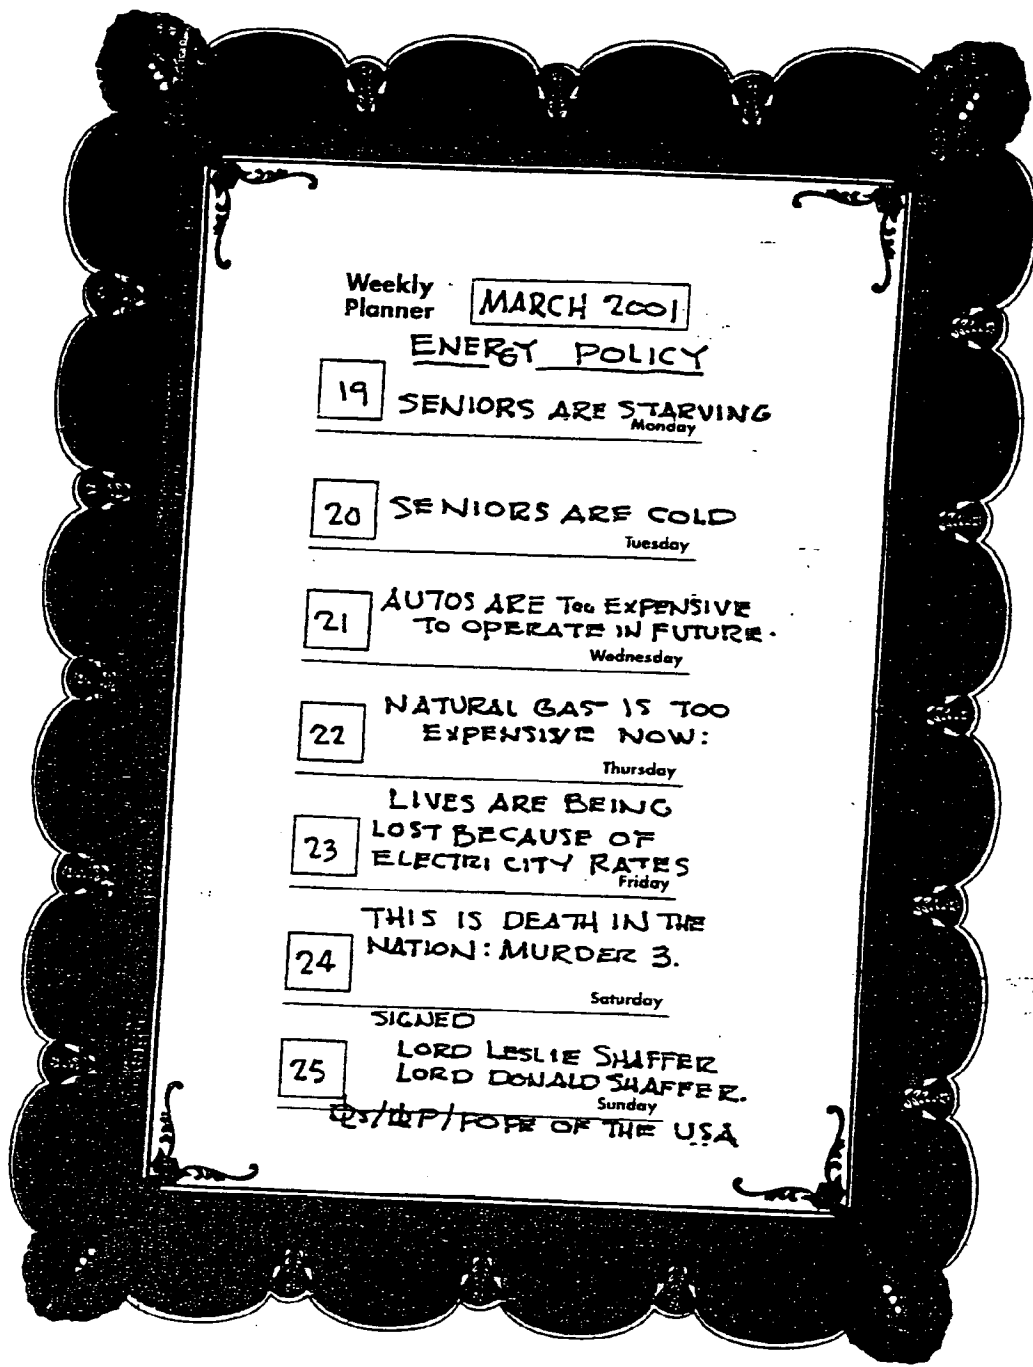 Weekly
Planner
MARCH 2001
ENERGY POLICY
19
SENIORS ARE STARVING
Monday
20
SENIORS ARE COLD
Tuesday
21
AUTOS ARE Too EXPENSIVE
TO OPERATE IN FUTURE.
Wednesday
22
NATURAL GAS IS TOO
EXPENSIVE NOW:
Thursday
LIVES ARE BEING
23
LOST BECAUSE OF
ELECTRI CITY RATES
Friday
THIS IS DEATH IN THE
24
NATION: MURDER 3.
Saturday
SIGNED
25
LORD LESLIE SHAFFER
LORD DONALD SHAFFER.
Sunday
/POPE OF THE USA